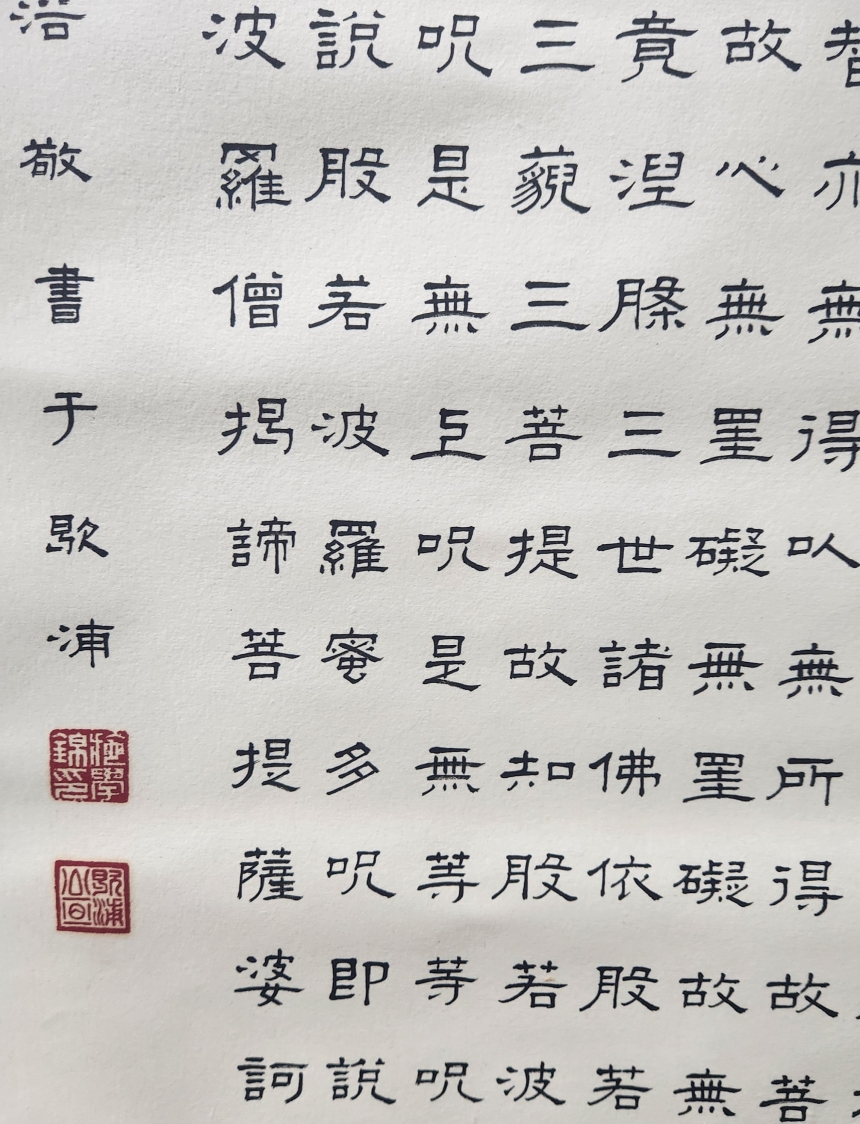 智亦無得以無所得故菩
故心無罣礙無罣礙故無
竟涅槃三世諸佛依般若
三藐三菩提故知般若波
呪是無上呪是無等等呪
說般若波羅蜜多呪即說
波羅僧揭諦菩提薩婆訶
敬書于歇浦
施學錦印